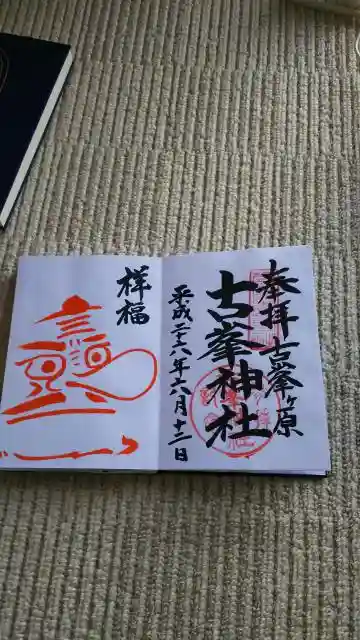 奉拝 古峯ヶ原
古峯神社
平成二十八年六月十二日
祥福